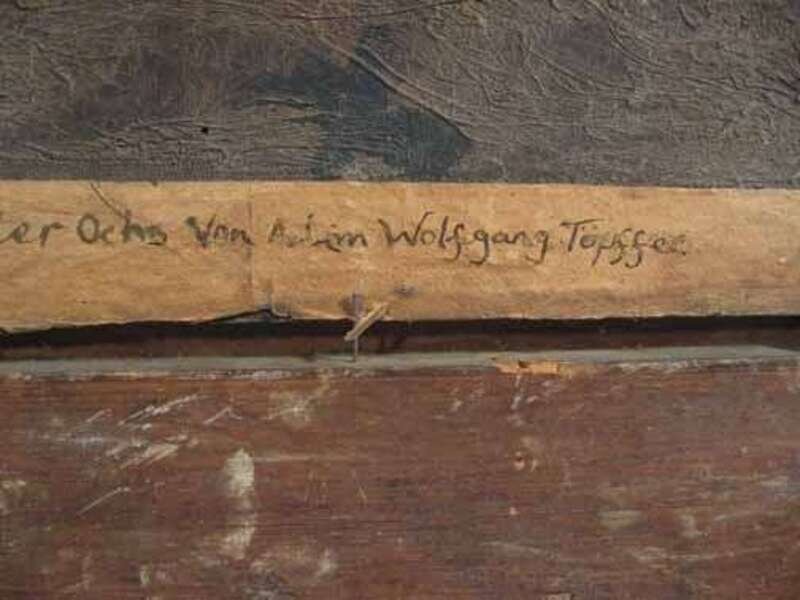 er Ochs Von Adam Wolfgang Töpffer